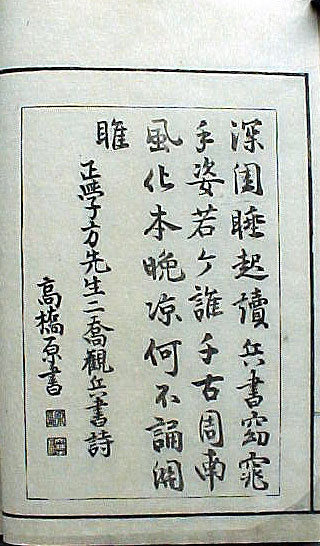 深閨睡起讀兵書窈窕
丰姿若个誰千古周南
風化本晚凉何不誦關
雎
正學方先生二喬觀兵書詩
高橋原書